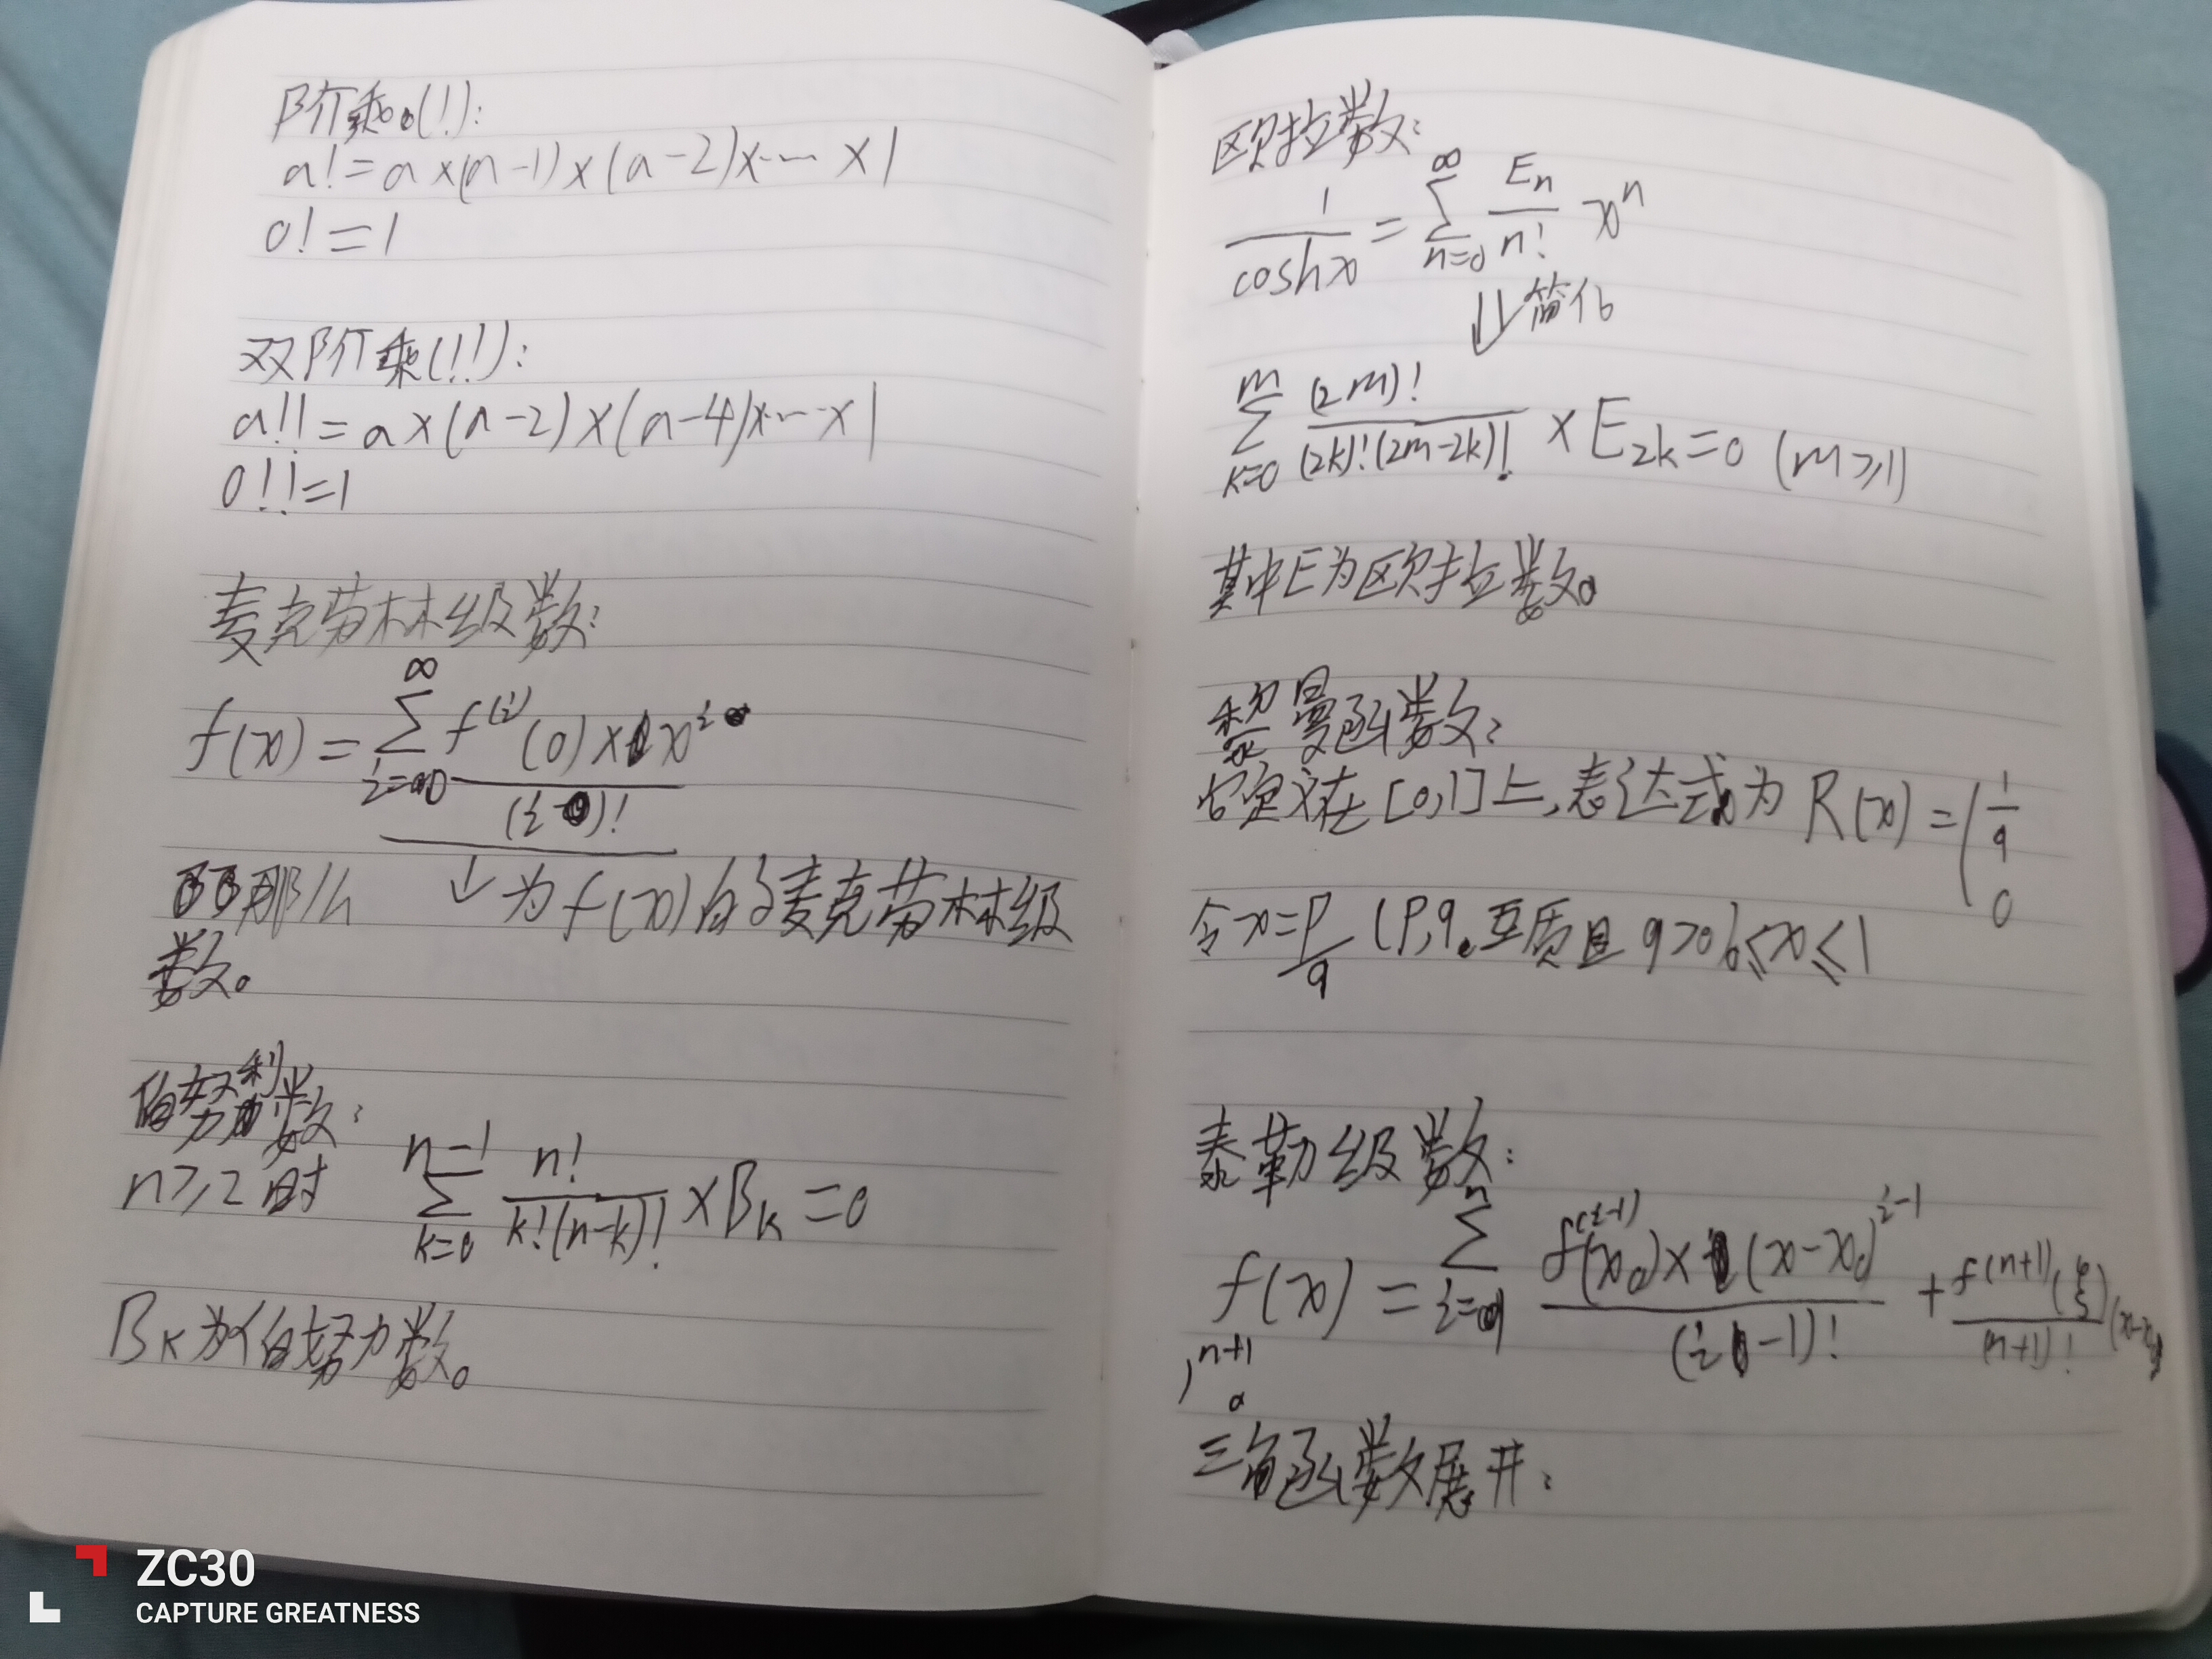 阶乘(!):
a!=a×(a-1)×(a-2)×…×1
0!=1
双阶乘(!!):
a!!=a×(a-2)×(a-4)×…×1
0!!=1
麦克劳林级数:
f(x)=∑_{i=0}^{∞} f^{(i)}(0)×x^i/(i)!
那么 ↓为f(x)的麦克劳林级
数。
伯努利数:
n≥2时 ∑_{k=0}^{n-1} n!/(k!(n-k)!)×B_k=0
B_k为伯努力数。
欧拉数:
1/coshx=∑_{n=0}^{∞} E_n/n! x^n
⇓简化
∑_{k=0}^{m} (2m)!/((2k)!(2m-2k)!)×E_{2k}=0 (m≥1)
其中E为欧拉数。
黎曼函数:
定义在[0,1]上,表达式为R(x)=(1/q
0
令x=p/q (p,q互质且q>0,0≤x≤1
泰勒级数:
f(x)=∑_{i=1}^{n} f^{(i-1)}(x_0)×(x-x_0)^{i-1}/(i-1)!+f^{(n+1)}(ξ)/(n+1)!(x-x_0
)^{n+1}
三角函数展开:
ZC30
CAPTURE GREATNESS